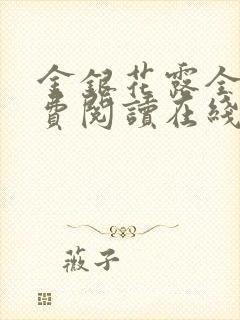 金銀花露全
費閱讀在綫
薇子